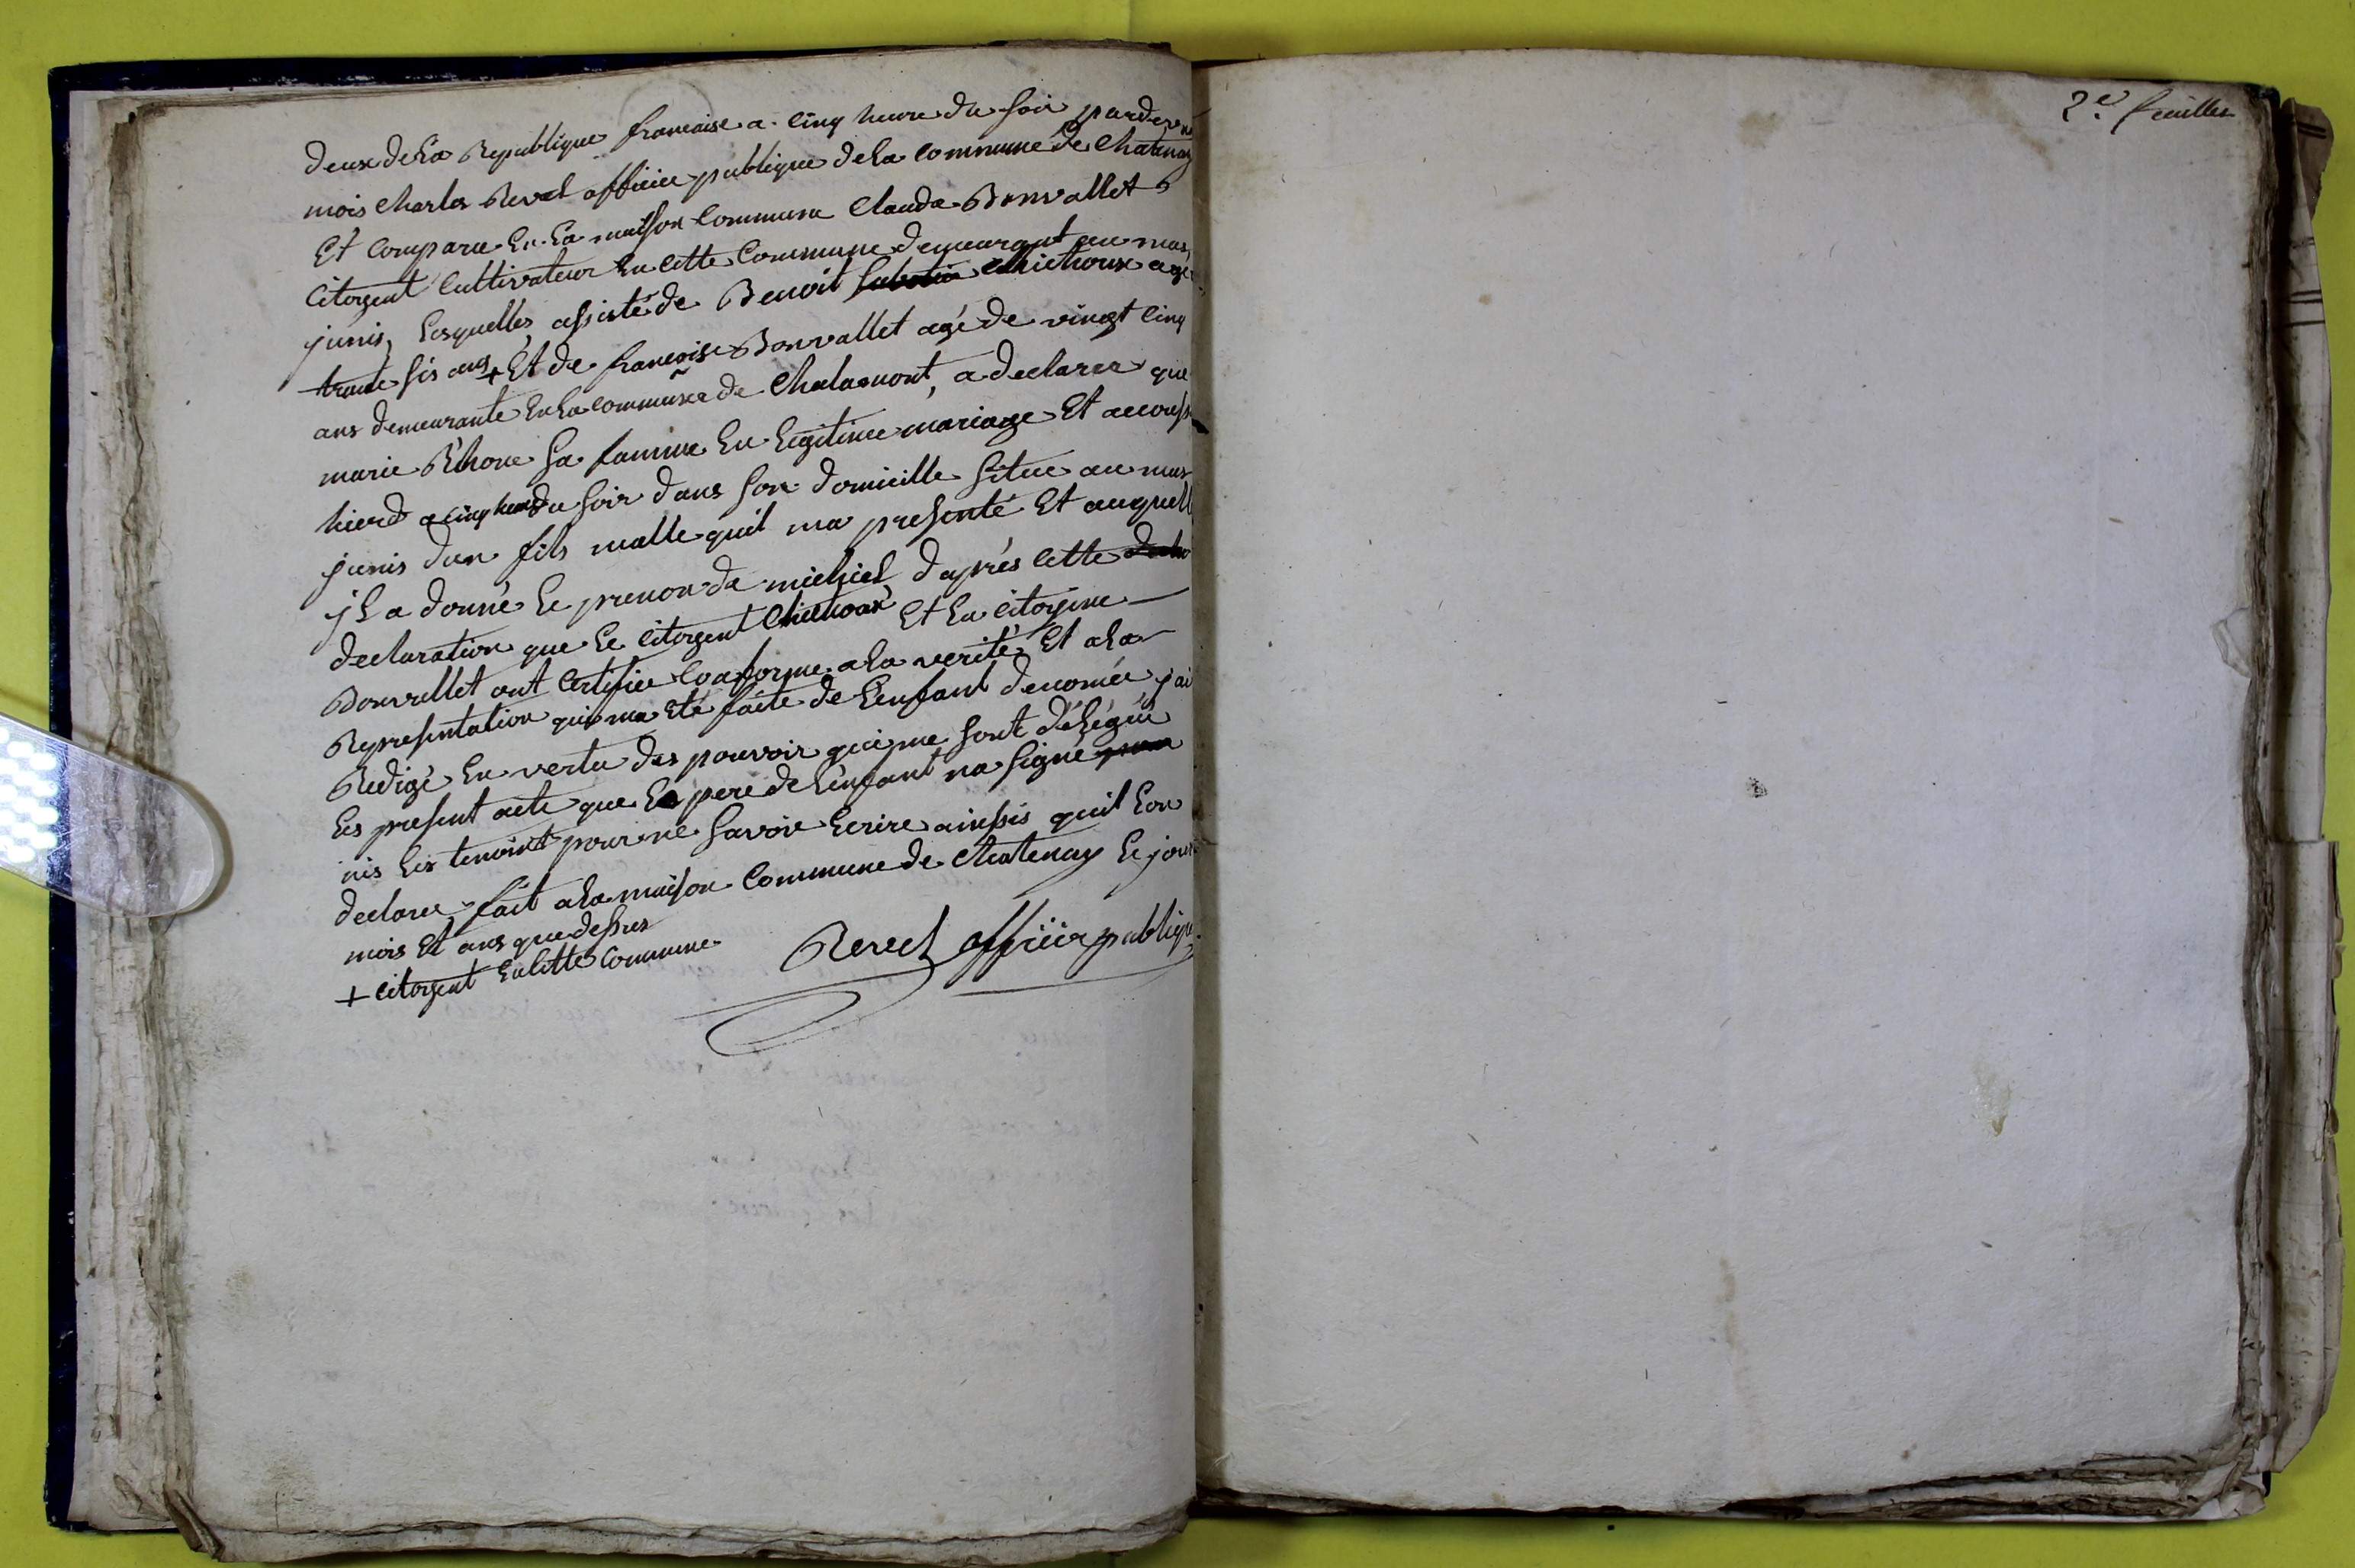 deux de la Republique francaise a cinq heure du soir pardev
mois Charles Revel officier publique de la commune de Chatenay
Et comparu En La maison Commune Claude Bonvallet
Citoyent Cultivateur En Cette Commune demeurant au mas
junis, Lesquelles assisté de Benoit Chichoux agé
trante sis ans + Et de francoise Bonvallet agé de vingt cinq
ans demeurante En La commune de Chalamont, a declarer que
marie Rhone Sa famme En Legitime mariage Et accouss
hierd a cinq heure du soir dans son domicille situe au mas
junis dun fils malle quil ma presenté Et auquell
jl a donné Le prenon de michiel d'aprés Cette
declaration que Le Citoyent Chichoux Et La Citoyine
Bonvallet ont Certifier Conforme a La verité Et a La
Representation qui ma Eté faite de L'enfant denomée jai
Redigé En vertu des pouvoir qui me sont délégué
Les present acte que Le pere de L'enfant na signé
nis Les temoint pour ne savoir Ecrire ainssis quil Lon
declarer fait a La maison Commune de Chatenay Le jour
mois Et ans que dessus
+ Citoyent En Cette Commune
Revel officier publique
2e. feuilles